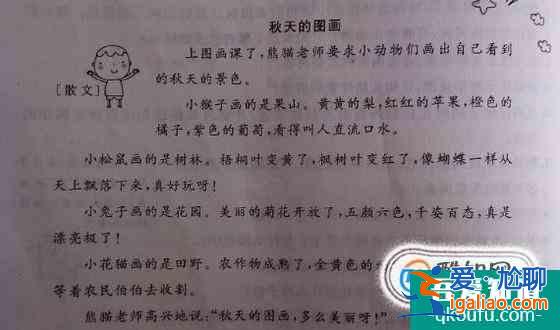 秋天的图画
上图画课了，熊猫老师要求小动物们画出自己看到
的秋天的景色。
[散文]
小猴子画的是果山。黄黄的梨，红红的苹果，橙色的
橘子，紫色的葡萄，看得叫人直流口水。
小松鼠画的是树林。梧桐叶变黄了，枫树叶变红了，像蝴蝶一样从
天上飘落下来，真好玩呀！
小兔子画的是花园。美丽的菊花开放了，五颜六色，千姿百态，真是
漂亮极了！
小花猫画的是田野。农作物成熟了，金黄色的
等着农民伯伯去收割。
熊猫老师高兴地说："秋天的图画，多么美丽呀！"
爱尬聊
igaliao.com
qkorou8.com